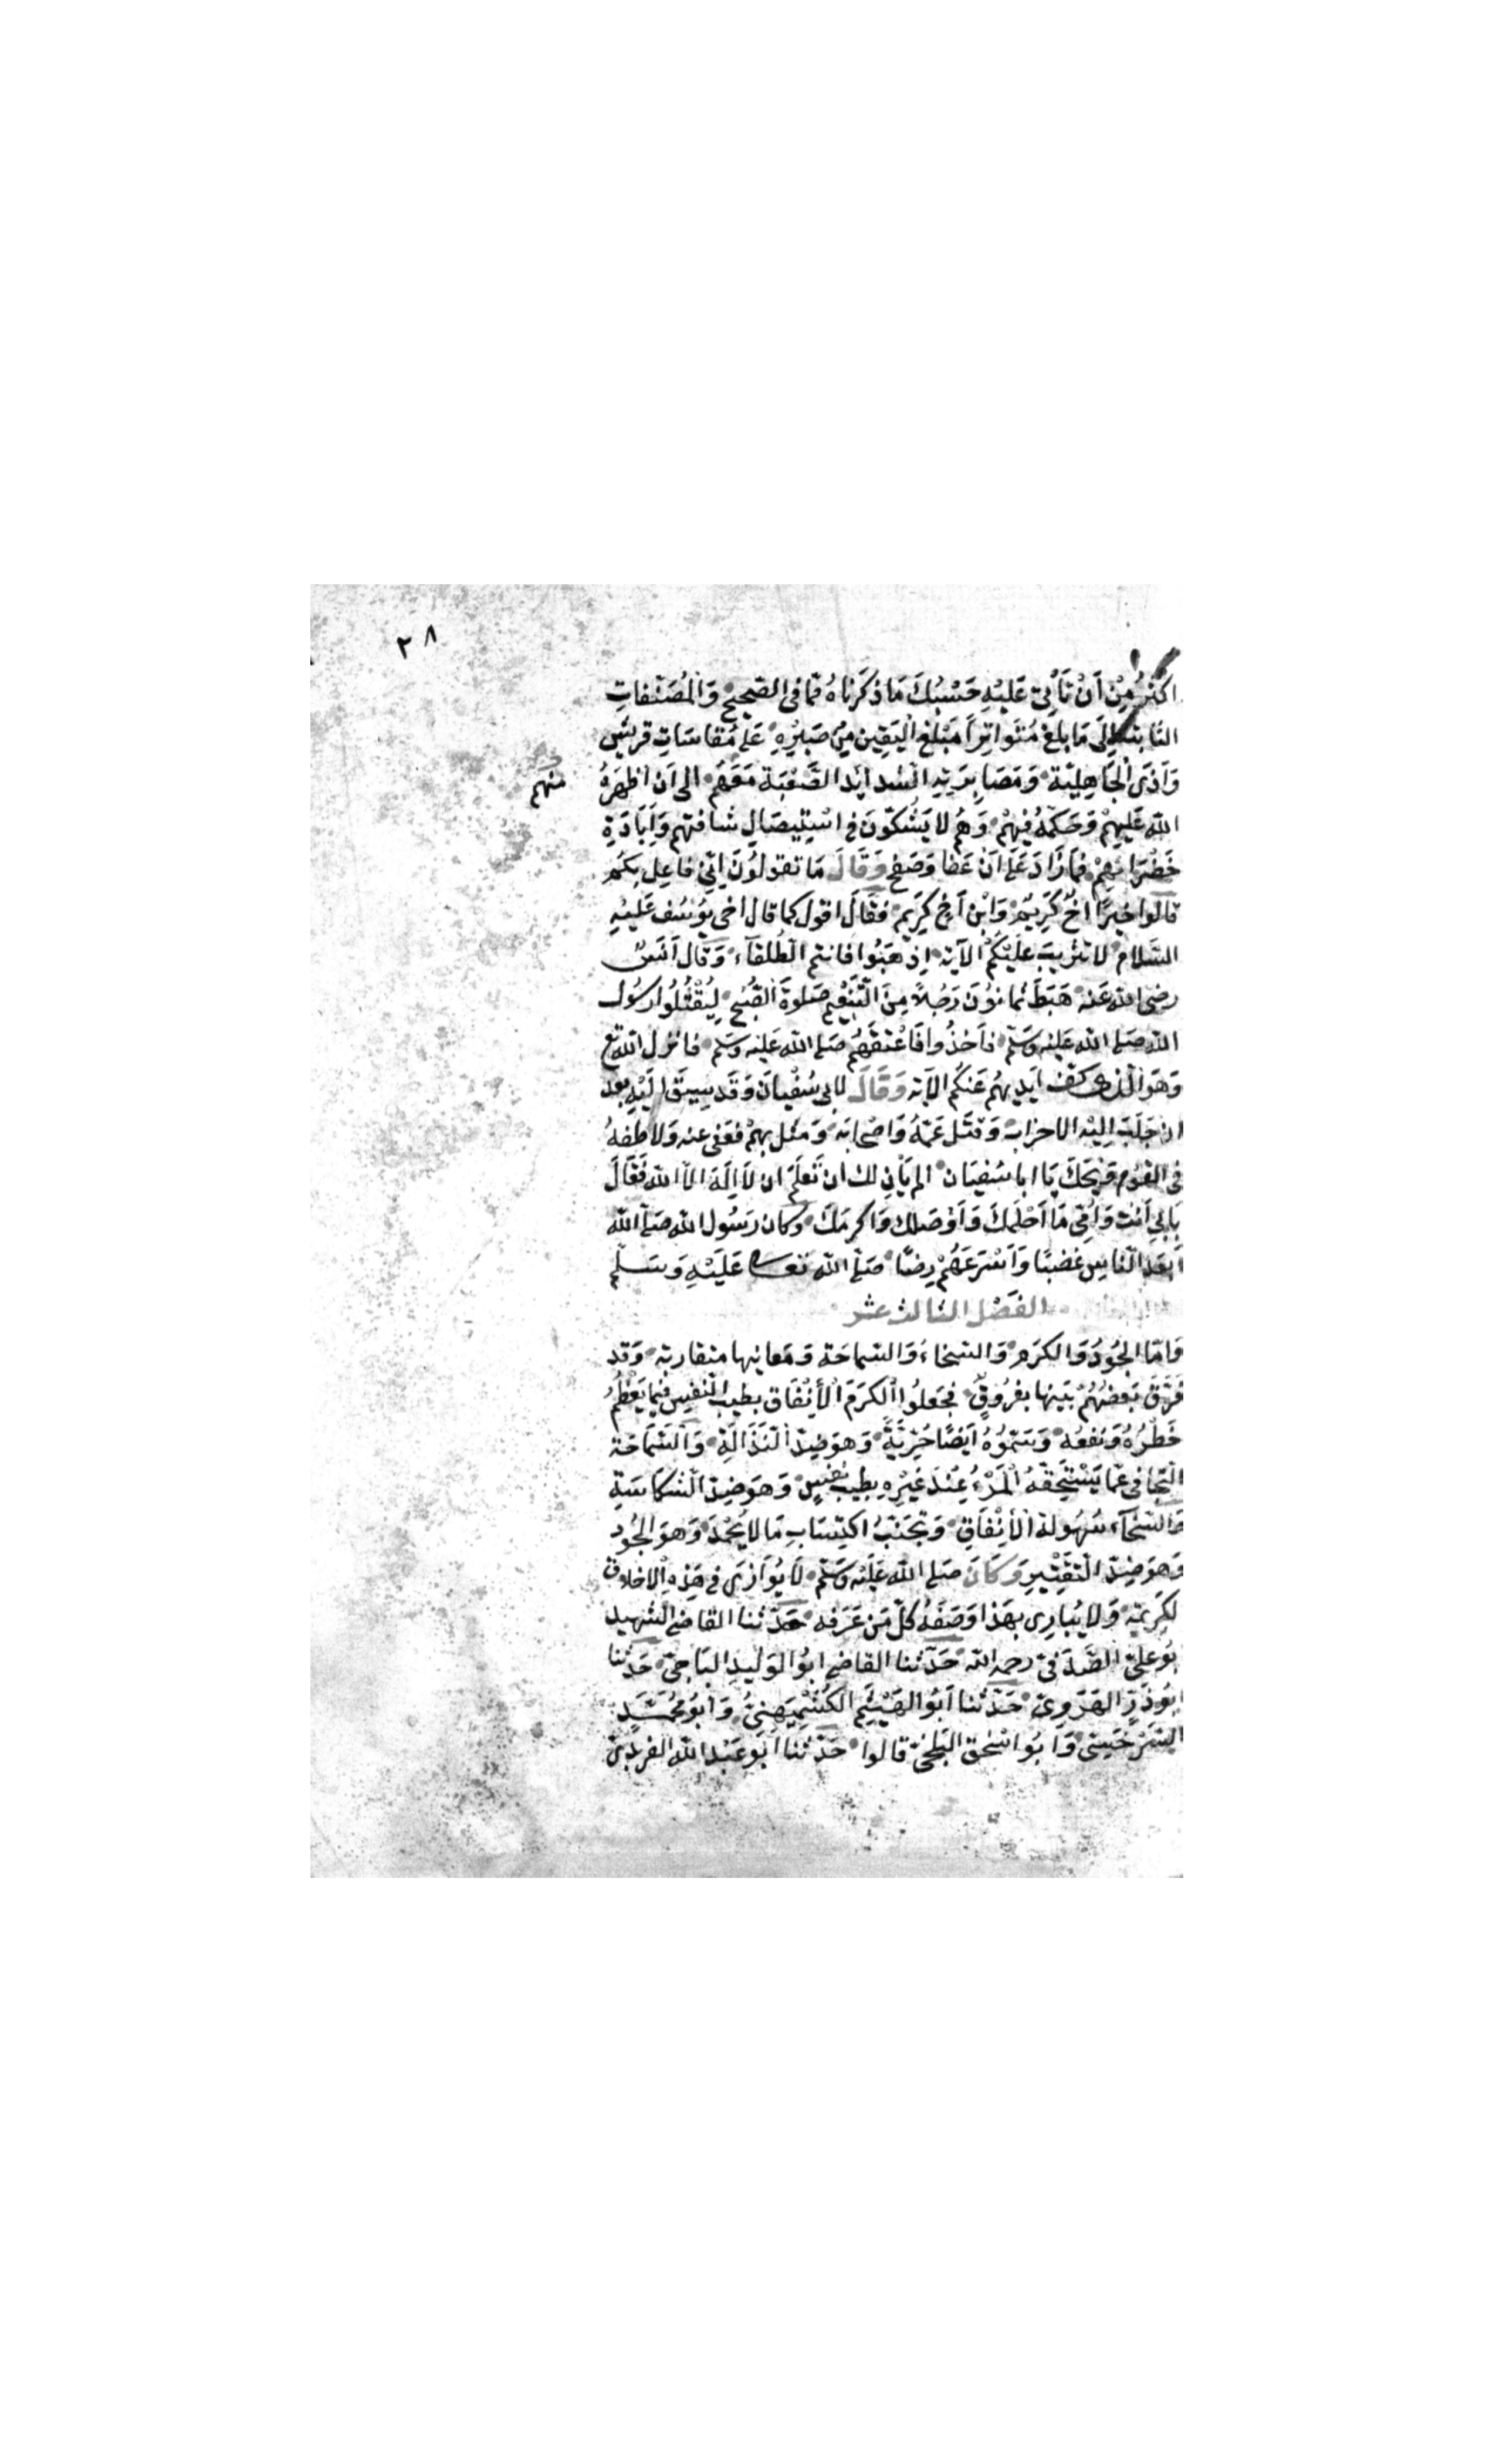 ٢٨
اكْثَرُ مِنْ اَنْ نَأْتِىَ عَلَيْهِ حَسْبُكَ مَا ذَكَرْنَاهُ مِمَّا فِى الصَّحِيحِ وَالْمُصَنَّفَاتِ
الثَّابِتَةِ اِلَى مَا بَلَغَ مُتَوَاتِراً مَبْلَغَ الْيَقِينِ مِنْ صَبْرِهِ عَلَى مُقَاسَاتِ قُرَيْشٍ
وَاَذَى الْجَاهِلِيَّةِ وَمُصَابَرَتِهِ الشَّدَايِدَ الصَّعْبَةَ مَعَهُمْ اِلَى اَنْ اَظْهَرَهُ
منهم
اللّٰهُ عَلَيْهِمْ وَحَكَّمَهُ فِيهِمْ وَهُمْ لَا يَشُكُّونَ فِى اسْتِيصَالِ شَافَتِهِمْ وَاِبَادَةِ
خَضْرَائِهِمْ فَمَا زَادَ عَلَى اَنْ عَفَا وَصَفَحَ وَقَالَ مَا تَقُولُونَ اِنِّى فَاعِلٌ بِكُمْ
قَالُوا خَيْرًا اَخٌ كَرِيمٌ وَابْنُ اَخٍ كَرِيمٍ فَقَالَ اَقُولُ كَمَا قَالَ اَخِى يُوسُفُ عَلَيْهِ
السَّلَامُ لَا تَثْرِيبَ عَلَيْكُمْ الْاٰيَةَ اِذْهَبُوا فَانْتُمُ الطُّلَقَآءُ وَقَالَ اَنَسٌ
رَضِىَ اللّٰهُ عَنْهُ هَبَطَ ثَمَانُونَ رَجُلاً مِنَ التَّنْعِيمِ صَلٰوةَ الصُّبْحِ لِيَقْتُلُوا رَسُولَ
اللّٰهِ صَلَّى اللّٰهُ عَلَيْهِ وَسَلَّمَ فَاُخِذُوا فَاَعْتَقَهُمْ صَلَّى اللّٰهُ عَلَيْهِ وَسَلَّمَ فَانْزَلَ اللّٰهُ تع
وَهُوَ الَّذِى كَفَّ اَيْدِيَهُمْ عَنْكُمْ الْاٰيَةَ وَقَالَ لِاَبِى سُفْيَانَ وَقَدْ سِيقَ اِلَيْهِ بَعْدَ
اَنْ جَلَبَ اِلَيْهِ الْاَحْزَابَ وَقَتَلَ عَمَّهُ وَاَصْحَابَهُ وَمَثَّلَ بِهِمْ فَعَفَى عَنْهُ وَلَاطَفَهُ
فِى الْقَوْلِ وَيْحَكَ يَا اَبَا سُفْيَانَ اَلَمْ يَأْنِ لَكَ اَنْ تَعْلَمَ اَنْ لَا اِلٰهَ اِلَّا اللّٰهُ فَقَالَ
بِاَبِى اَنْتَ وَاُمِّى مَا اَحْلَمَكَ وَاَوْصَلَكَ وَاَكْرَمَكَ وَكَانَ رَسُولُ اللّٰهِ صَلَّى اللّٰهُ
اَبْعَدَ النَّاسِ غَضَبًا وَاَسْرَعَهُمْ رِضًا صَلَّى اللّٰهُ تَعَالَى عَلَيْهِ وَسَلَّمَ
الفَصْل الثالث عشر
وَاَمَّا الْجُودُ وَالْكَرَمُ وَالسَّخَاءُ وَالسَّمَاحَةُ وَمَعَانِيهَا مُتَقَارِبَةٌ وَقَدْ
فَرَّقَ بَعْضُهُمْ بَيْنَهَا بِفُرُوقٍ فَجَعَلُوا الْكَرَمَ الْاِنْفَاقَ بِطِيبِ النَّفْسِ فِيمَا يَعْظُمُ
خَطَرُهُ وَنَفْعُهُ وَسَمَّوْهُ اَيْضًا حُرِّيَّةً وَهُوَ ضِدُّ النَّذَالَةِ وَالسَّمَاحَةُ
التَّجَافِى عَمَّا يَسْتَحِقُّهُ الْمَرْءُ عِنْدَ غَيْرِهِ بِطِيبِ نَفْسٍ وَهُوَ ضِدُّ الشَّكَاسَةِ
وَالسَّخَآءُ سُهُولَةُ الْاِنْفَاقِ وَتَجَنُّبُ اكْتِسَابِ مَا لَا يُحْمَدُ وَهُوَ الْجُودُ
وَهُوَ ضِدُّ التَّقْتِيرِ وَكَانَ صَلَّى اللّٰهُ عَلَيْهِ وَسَلَّمَ لَا يُوَازَى فِى هٰذِهِ الْاَخْلَاقِ
لكَرِيمَةِ وَلَا يُبَارَى بِهٰذَا وَصَفَهُ كُلُّ مَنْ عَرَفَهُ حَدَّثَنَا الْقَاضِى الشَّهِيدُ
بُو عَلِىٍّ الصَّدَفِىُّ رَحِمَهُ اللّٰهُ حَدَّثَنَا الْقَاضِى اَبُو الْوَلِيدِ الْبَاجِىُّ حَدَّثَنَا
اَبُو ذَرٍّ الْهَرَوِىُّ حَدَّثَنَا اَبُو الْهَيْثَمِ الْكُشْمِيهَنِىُّ وَاَبُو مُحَمَّدٍ
السَّرْخَسِىُّ وَاَبُو اسْحٰقَ الْبَلْخِىُّ قَالُوا حَدَّثَنَا اَبُو عَبْدِ اللّٰهِ الْفَرَبْرِىُّ